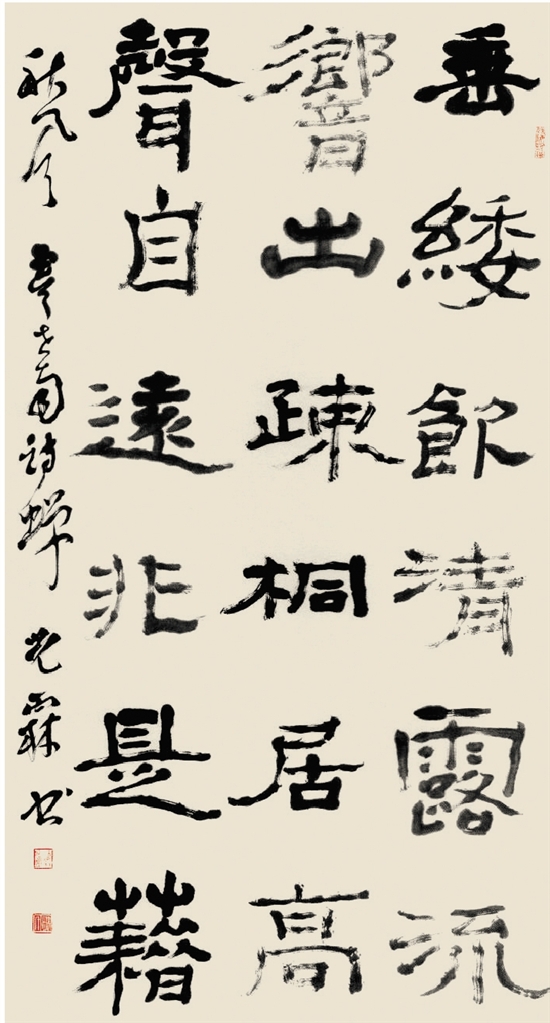 垂緌飲清露流
響出疎桐居高
聲自遠非是藉
秋风 虞世南诗蝉 光霖书